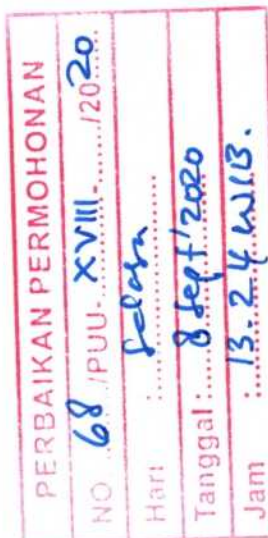 PERBAIKAN PERMOHONAN
NO. 68 /PUU- XVIII /2020
Hari : Selasa
Tanggal : 8 Sept'2020
Jam : 13.24 WIB.